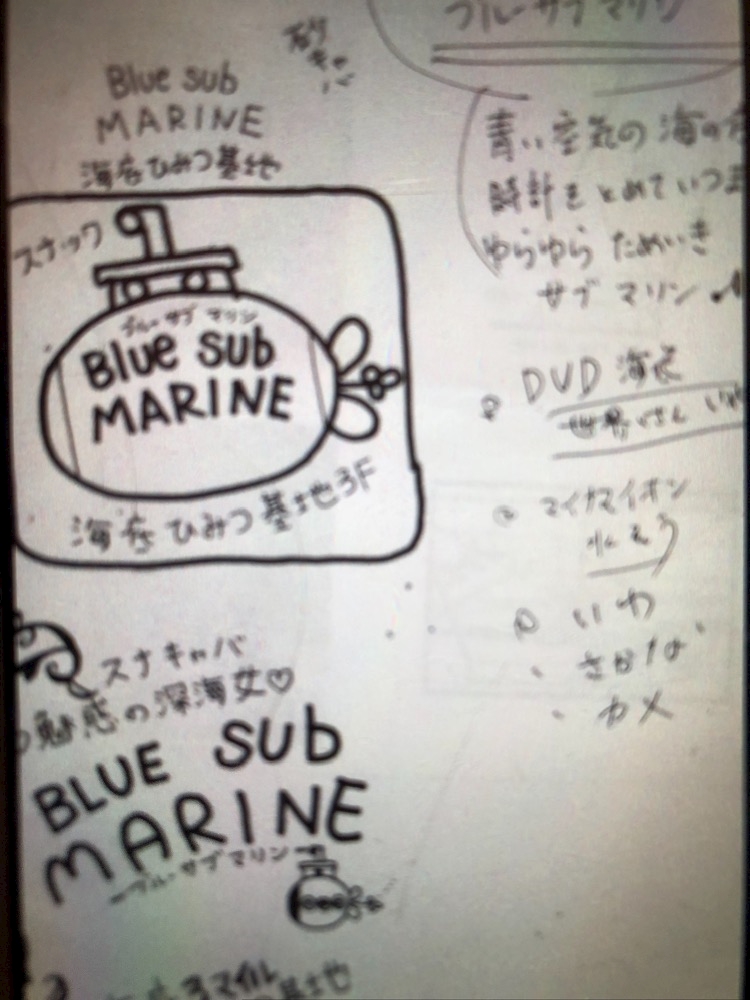 Blue sub
MARINE
海底ひみつ基地
キャバ
スナック
ブルーサブマリン
Blue sub
MARINE
海底ひみつ基地3F
スナキャバ
魅惑の深海女♡
BLUE sub
MARINE
ブルーサブマリン
マイル
基地
ブルーサブマリン
青い空気の海の
時計をとめていつ
ゆらゆらためいき
サブマリン♪
DVD 海底
世界
マイナマイオン
いわ
さかな
カメ